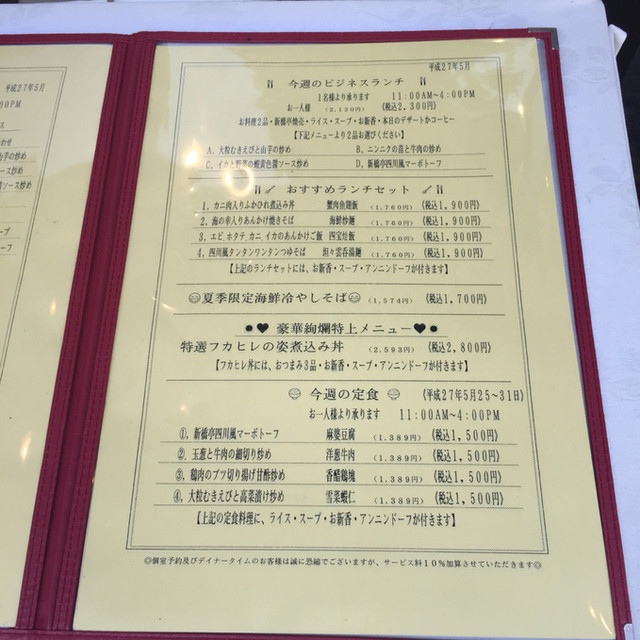 平成27年5月
今週のビジネスランチ
1名様より承ります 11:00AM~4:00PM
お一人様 (2,130円) (税込2,300円)
お料理2品・新橋亭焼売・ライス・スープ・お新香・本日のデザートかコーヒー
【下記メニューより2品お選びください】
A. 大粒むきえびと山芋の炒め B. ニンニクの苗と牛肉の炒め
C. イカと野菜の蝦黄色醤ソース炒め D. 新橋亭四川風マーボトーフ
おすすめランチセット
1. カニ肉入りふかひれ煮込み丼 蟹肉魚翅飯 (1,760円) (税込1,900円)
2. 海の幸入りあんかけ焼きそば 海鮮炒麺 (1,760円) (税込1,900円)
3. エビ、ホタテ、カニ、イカのあんかけご飯 四宝烩飯 (1,760円) (税込1,900円)
4. 四川風タンタンワンタンつゆそば 坦々雲呑湯麺 (1,760円) (税込1,900円)
【上記のランチセットには、お新香・スープ・アンニンドーフが付きます】
夏季限定海鮮冷やしそば (1,574円) (税込1,700円)
●♥ 豪華絢爛特上メニュー♥●
特選フカヒレの姿煮込み丼 (2,593円) (税込2,800円)
【フカヒレ丼には、おつまみ3品・お新香・スープ・アンニンドーフが付きます】
今週の定食 (平成27年5月25~31日)
お一人様より承ります 11:00AM~4:00PM
①. 新橋亭四川風マーボトーフ 麻婆豆腐 (1,389円) (税込1,500円)
②. 玉葱と牛肉の細切り炒め 洋葱牛肉 (1,389円) (税込1,500円)
③. 鶏肉のブツ切り揚げ甘酢炒め 香醋鶏塊 (1,389円) (税込1,500円)
④. 大粒むきえびと高菜漬け炒め 雪菜蝦仁 (1,389円) (税込1,500円)
【上記の定食料理に、ライス・スープ・お新香・アンニンドーフが付きます】
◎個室予約及びデイナータイムのお客様は誠に恐縮でございますが、サービス料10%加算させていただきます◎